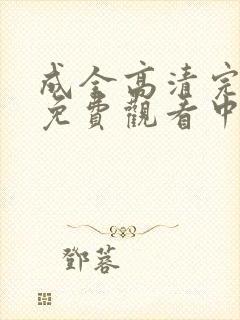 成全高清完
免費觀看中
鄧蓉